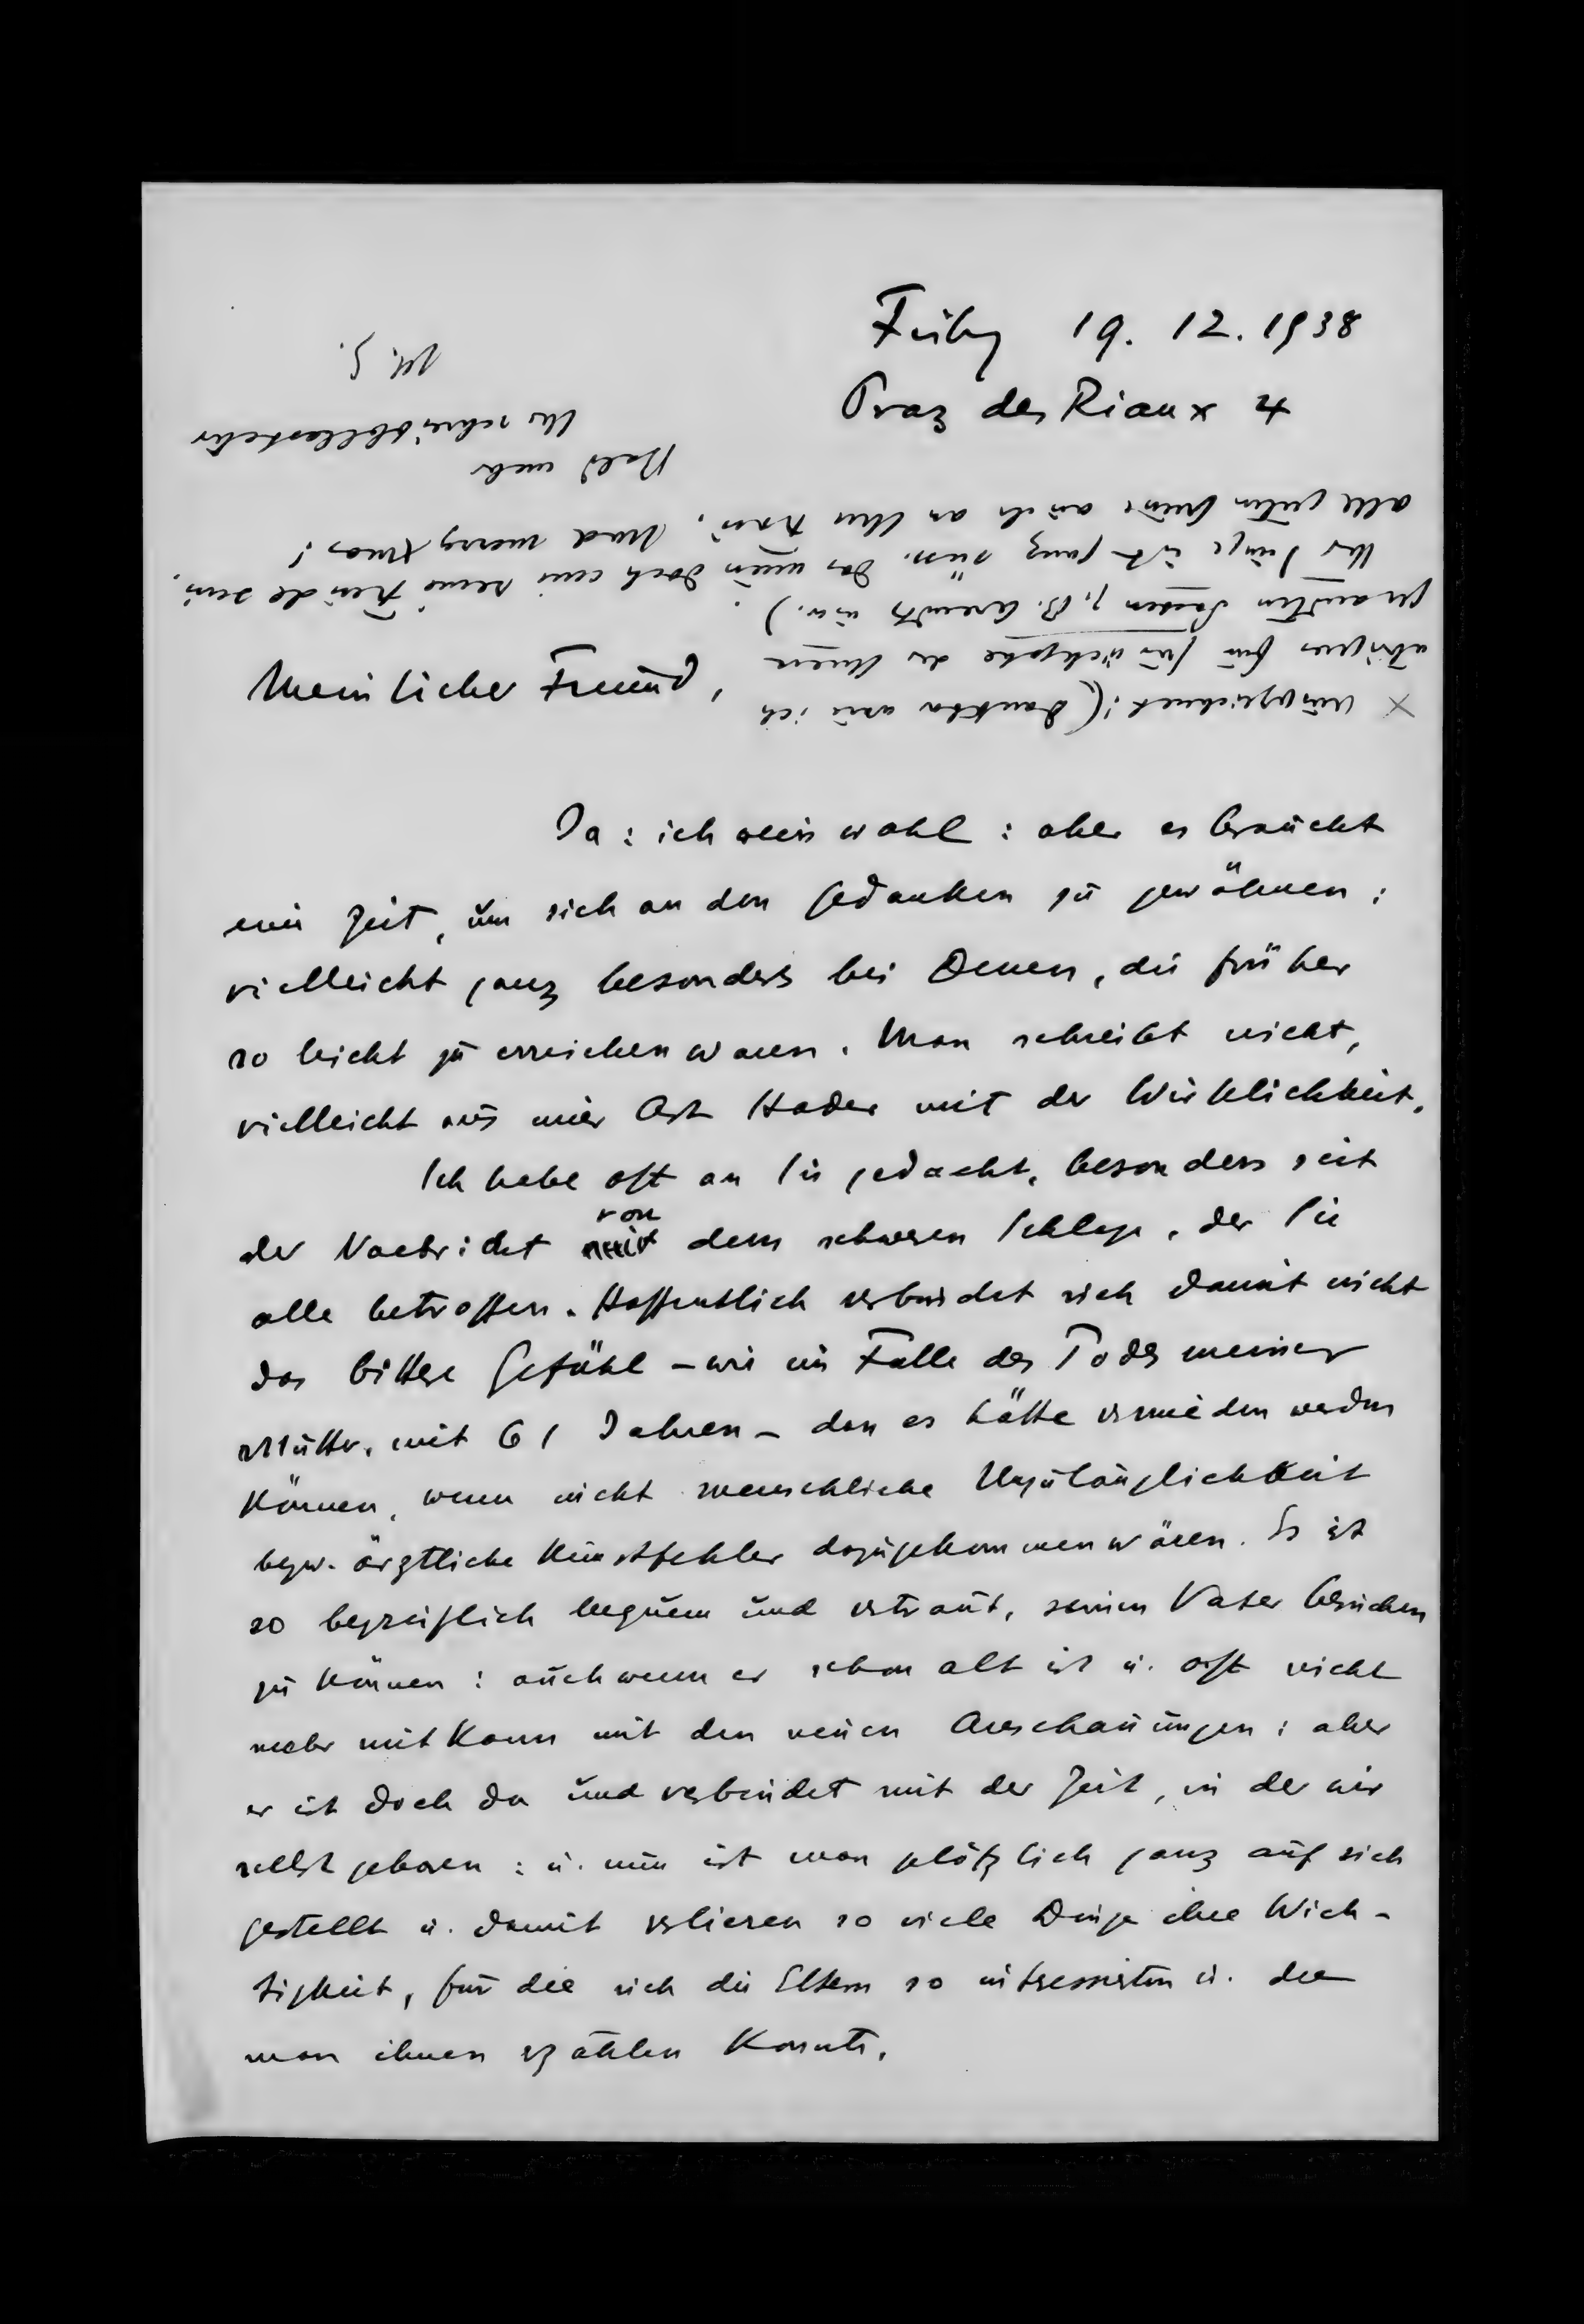 Fribg 19. 12. 1938
Praz des Riaux 4
Mein lieber Freund,
Ja: ich weiss wohl: aber es braucht
eine Zeit, um sich an den Gedanken zu gewöhnen:
vielleicht ganz besonders bei Denen, die früher
so leicht zu erreichen waren. Man schreibt nicht,
vielleicht aus einer Art Hader mit der Wirklichkeit.
Ich habe oft an Sie gedacht, besonders seit
der Nachricht von dem schweren Schlage, der Sie
alle betroffen. Hoffentlich verbindet sich damit nicht
das bittere Gefühl – wie im Falle des Todes meiner
Mutter, mit 61 Jahren – dass es hätte vermieden werden
können, wenn nicht menschliche Unzulänglichkeit
bezw. ärztliche Kunstfehler dazugekommen wären. Es ist
so begreiflich bequem und vertraut, seinen Vater besuchen
zu können: auch wenn er schon alt ist u. oft nicht
mehr mit kann mit den neuen Anschauungen: aber
er ist doch da und verbindet mit der Zeit, in der wir
selbst geboren: u. nun ist man plötzlich ganz auf sich
gestellt u. damit verlieren so viele Dinge ihre Wich-
tigkeit, für die sich die Eltern so interessierten u. die
man ihnen erzählen konnte.
x ausgezeichnet! (Danktba wäre ich
übrigens für Rückgabe der Ihnen
gesandten Sachen z.B. Arendts usw.)
Ihr Junge ist ganz süss. Das muss doch eine reine Freude sein.
alle guten Grüsse auch an Ihre Frau. And merry Xmas!
Bald mehr
Ihr schreibbelasteter